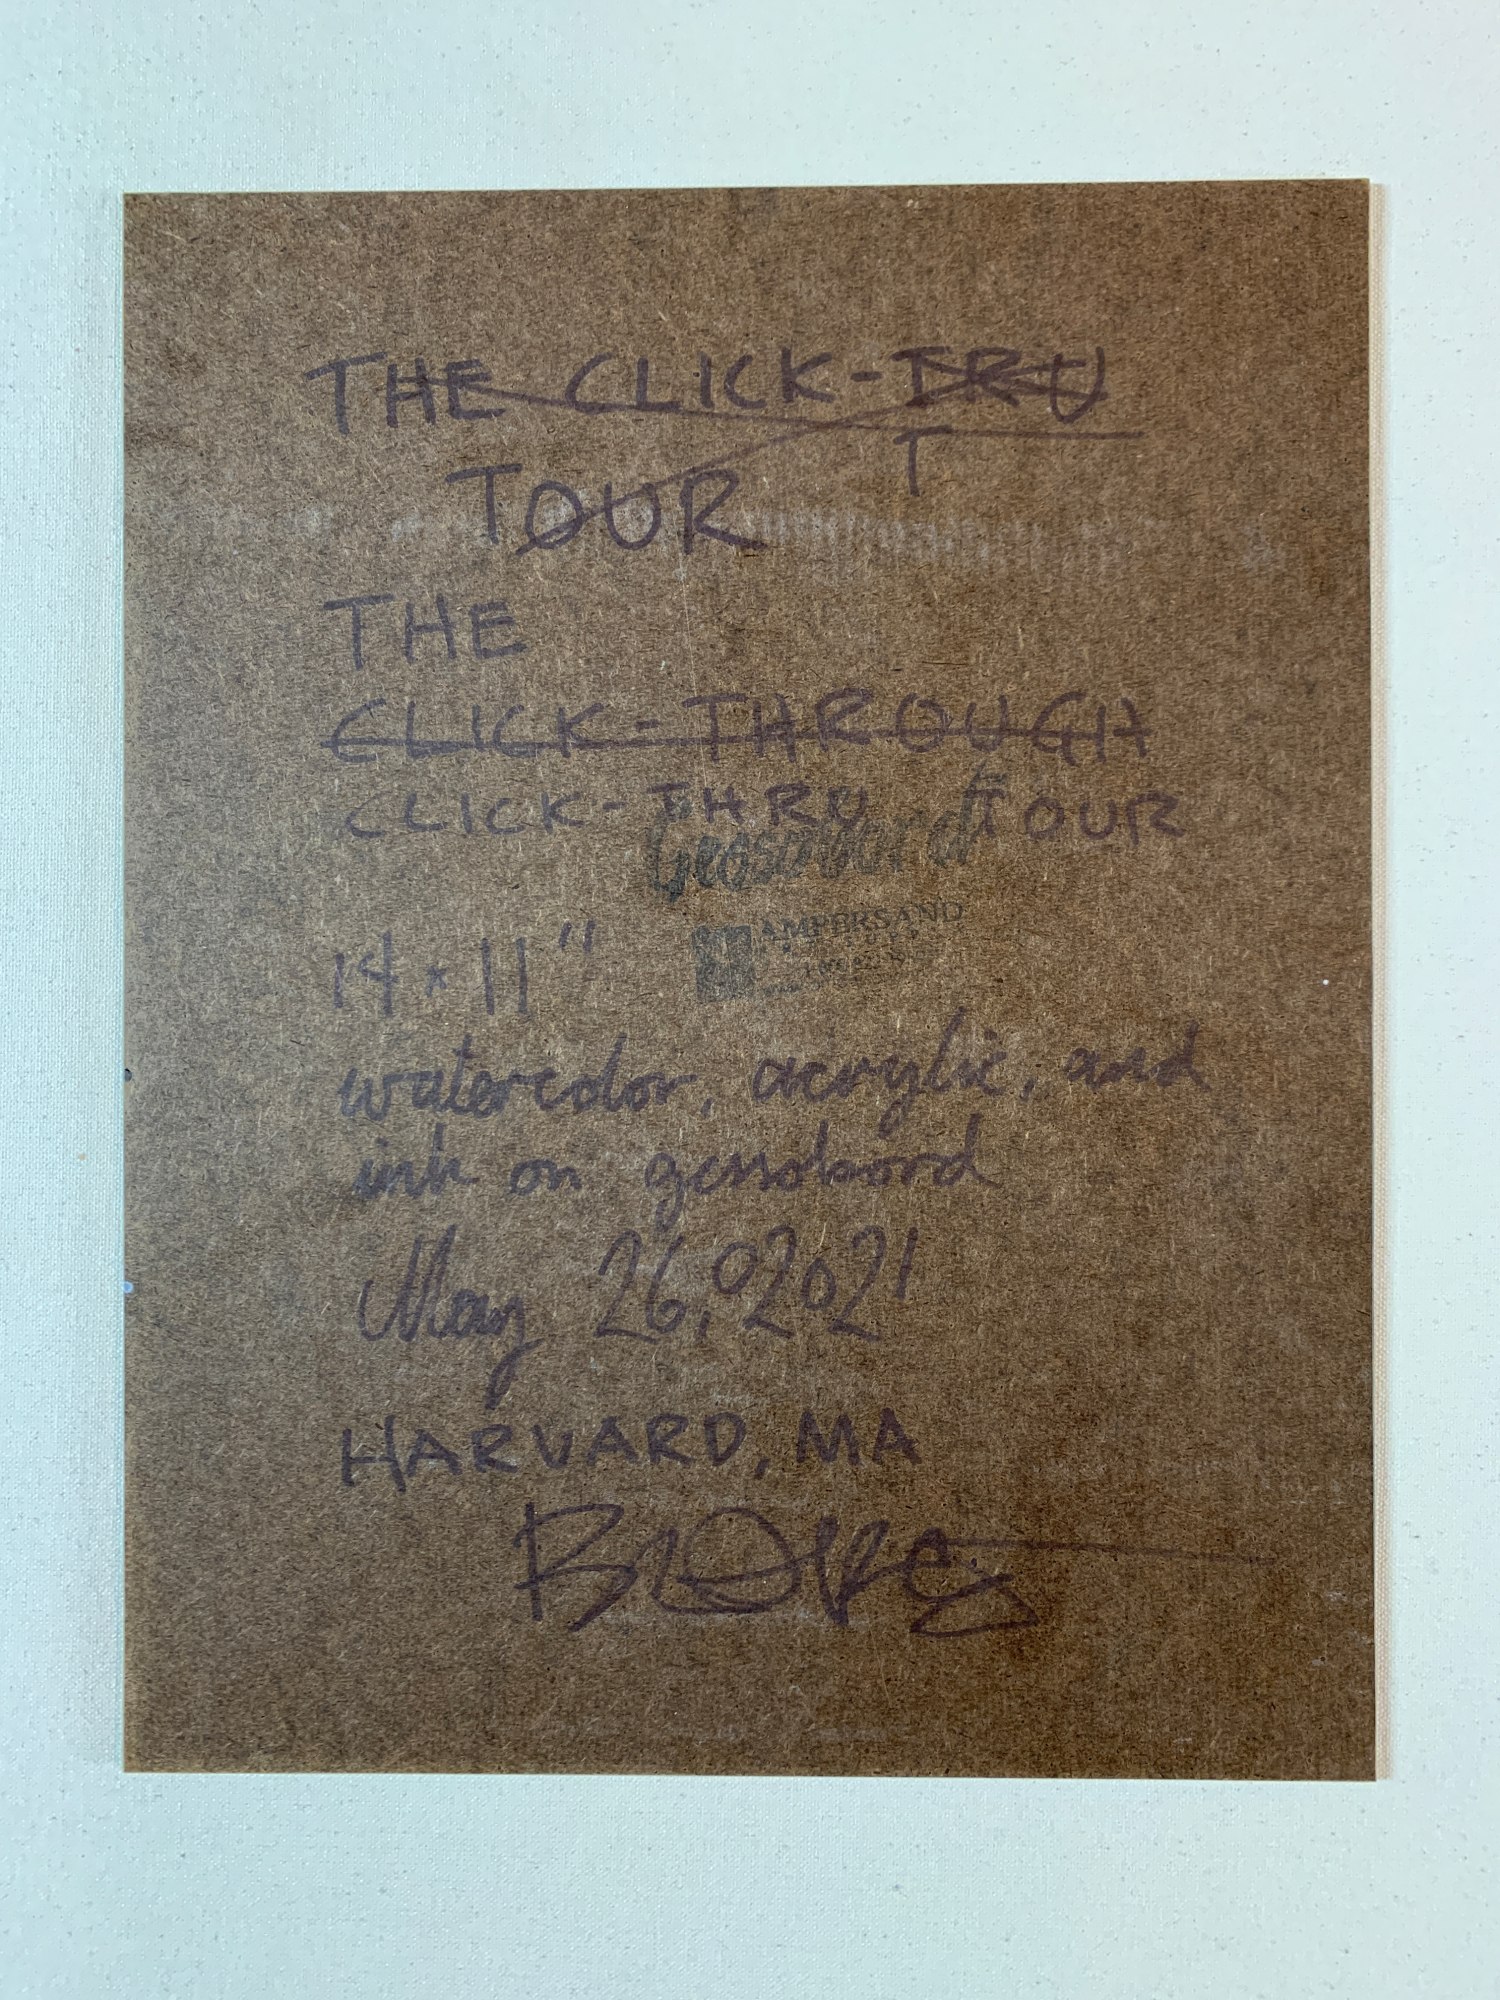 THE CLICK-TRU
T
TOUR
THE
CLICK-THROUGH
CLICK-THRU TOUR
Gessobord
AMPERSAND
14 x 11"
watercolor, acrylic, and
ink on gessobord
May 26, 2021
HARVARD, MA